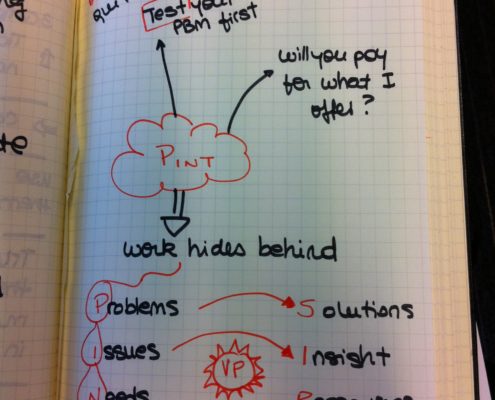 Test your
PBM first
will you pay
for what I
offer?
PINT
work hides behind
Problems Solutions
Issues Insight
VP
Needs